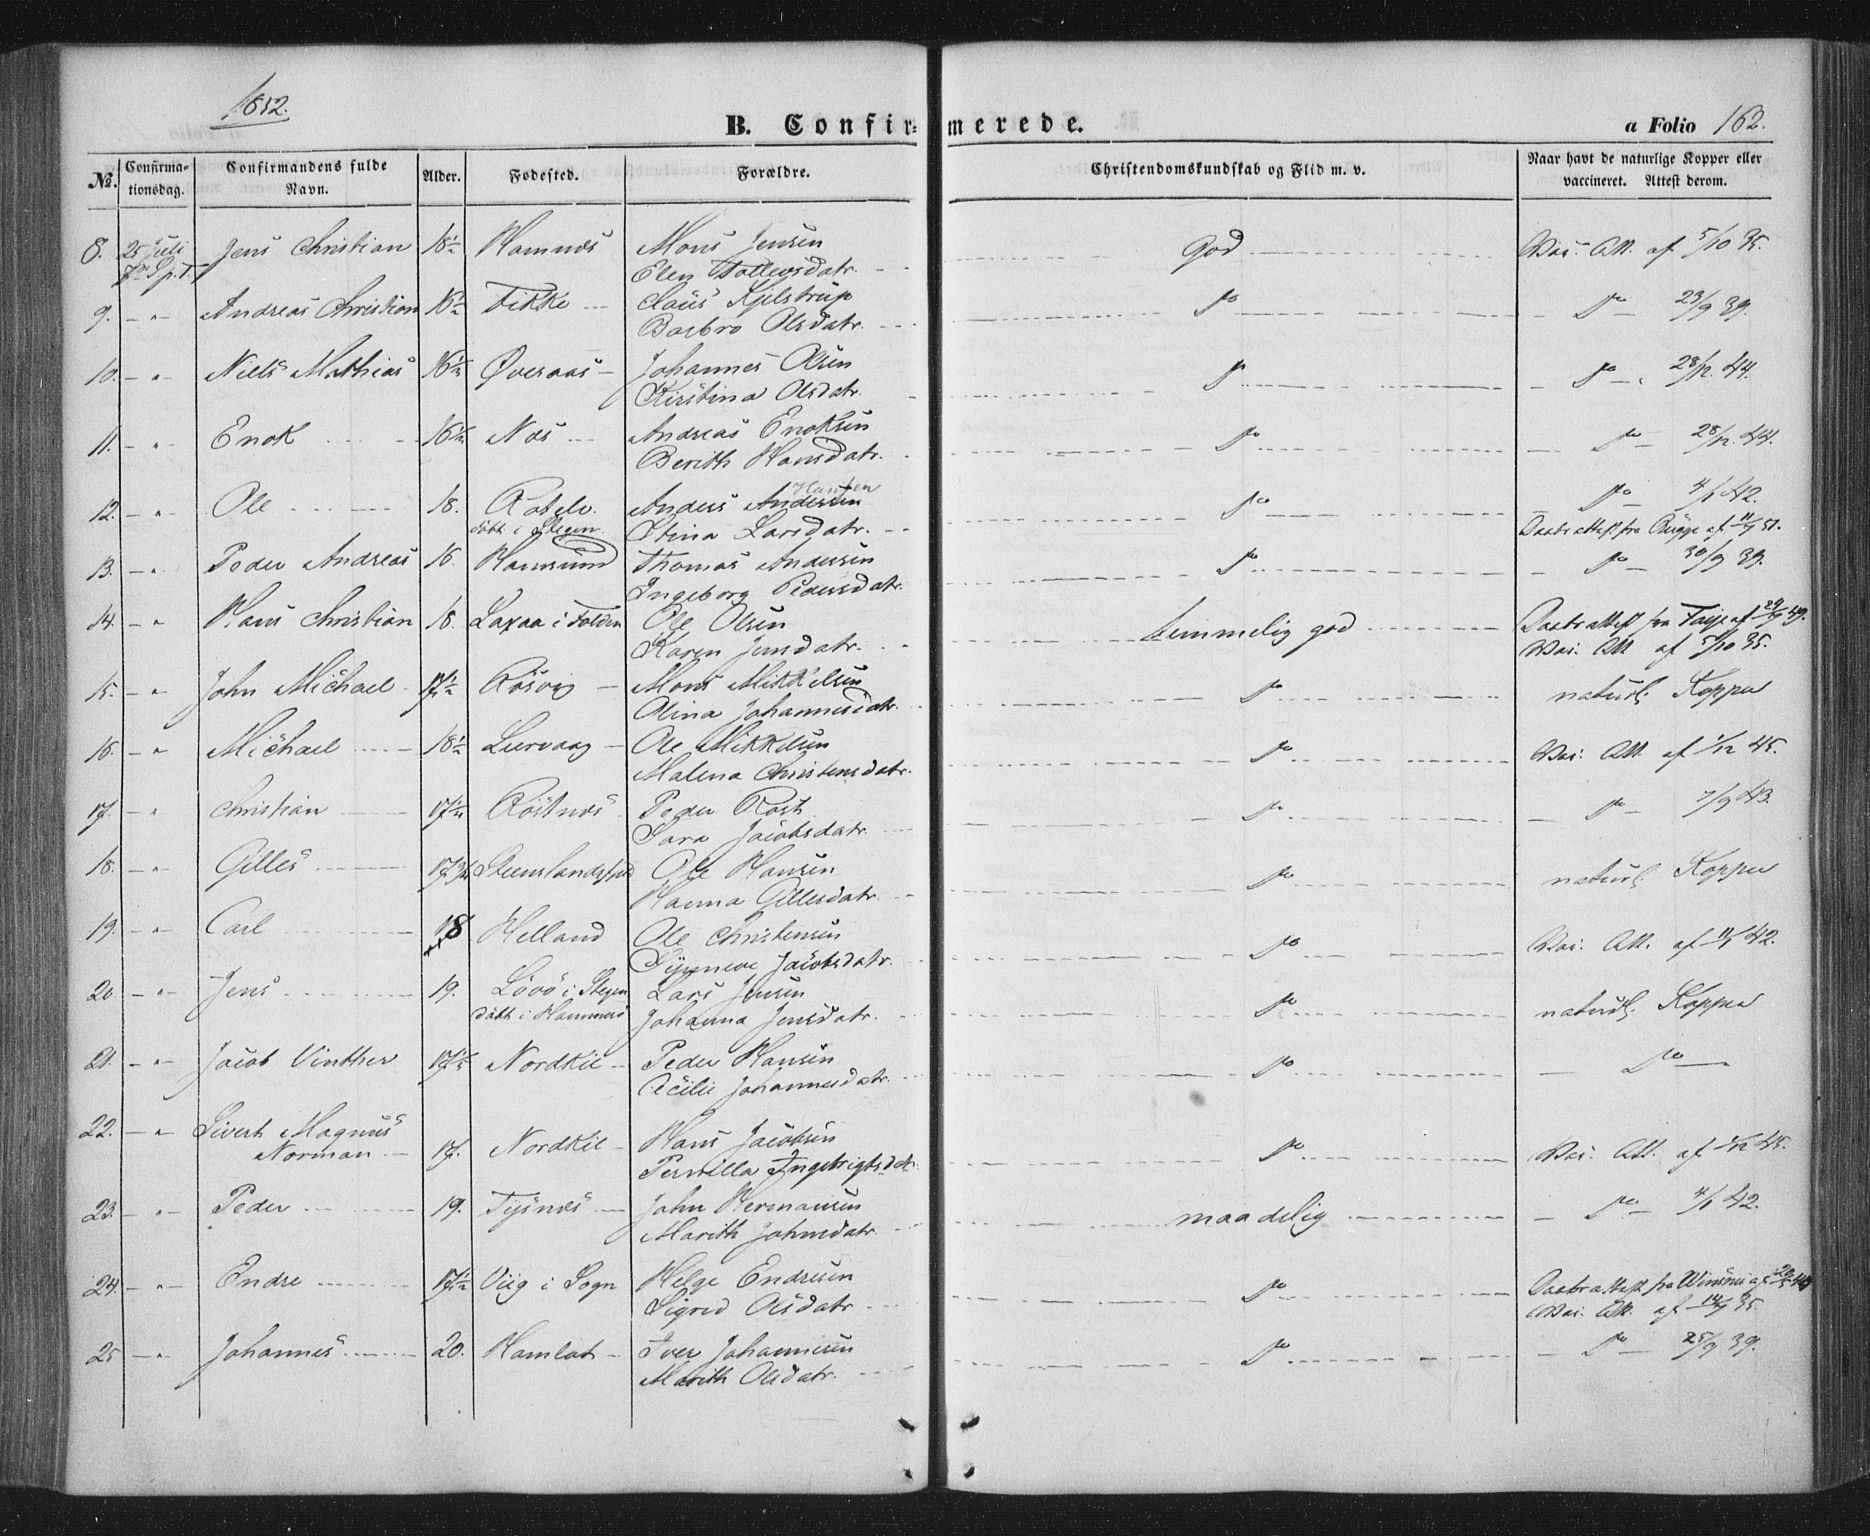 1852.
B. Confirmerede. a Folio 162.
№. Confirmationsdag. Confirmandens fulde Navn. Alder. Fødested. Forældre. Christendomskundskab og Flid m. v. Naar havt de naturlige Kopper eller vaccineret. Attest derom.
8. 25 Juli Jens Christian 18½ Hamnæs Mons Jensen God Vac. Att. af 5/10 35.
Elen Tollevsdatr.
9. – " – Andreas Christian 16½ Fikke Claus Kjelstrup do do 23/9 39.
Barbro Olsdatr.
10. – " Niels Mathias 16½ Øveraas Johannes Olsen do do 28/12 44.
Kirstina Olsdatr.
11. – " Enok 16½ Næs Andreas Enoksen do do 28/12 44.
Berith Hansdatr.
12. – " Ole 18. Anders Andersen Hansen do do 4/1 42.
døbt i Stegen Stina Larsdatr.
13. – " Peder Andreas 16. Hamsund Thomas Andersen do do 30/9 39.
Ingeborg Pedersdatr.
14. – " Hans Christian 18. Laxaa i Folden Ole Olsen temmelig god Daabsattest fra
Karen Jensdatr. Vac. Att. af 5/10 35.
15. – " John Michael 17½ Røsvig Mons Mikkelsen do naturl. Kopper
Olina Johannesdatr.
16. – " Michael 18½ Leervaag Ole Mikkelsen do Vac. Att. af 1/12 45.
Malena Christensdatr.
17. – " Christian 17½ Røstnæs Peder Rost do do 7/9 43.
Sara Jacobsdatr.
18. – " Gilles 17¾ Ole Hansen do naturl. Kopper
Hanna Gillesdatr.
19. – " Carl 18 Helland Ole Christensen do Vac. Att. af 11/1 42.
Synneve Jacobsdatr.
20. – " Jens 19. Løvø i Stegen Lars Jensen do naturl. Kopper
døbt i Hammerø Johanna Jensdatr.
21. – " Jacob Vinther 17½ Nordkil Peder Hansen do do
Cecilie Johannesdatr.
22. – " Sivert Magnus
Norman 17. Nordkil Hans Jacobsen do Vac. Att. af 1/12 45.
Pernilla Ingebrigtsdatr.
23. – " Peder 19. Tysnæs John Hermansen maadelig do 4/1 42.
Marith Johnsdatr.
24. – " Endre 17½ Viig i Sogn Helge Endresen do Daabsattest fra
Sigrid Olsdatr. Vac. Att. af 14/9 35.
25 – " Johannes 20. Hamlot Iver Johannesen do do 25/9 39.
Marith Olsdatr.